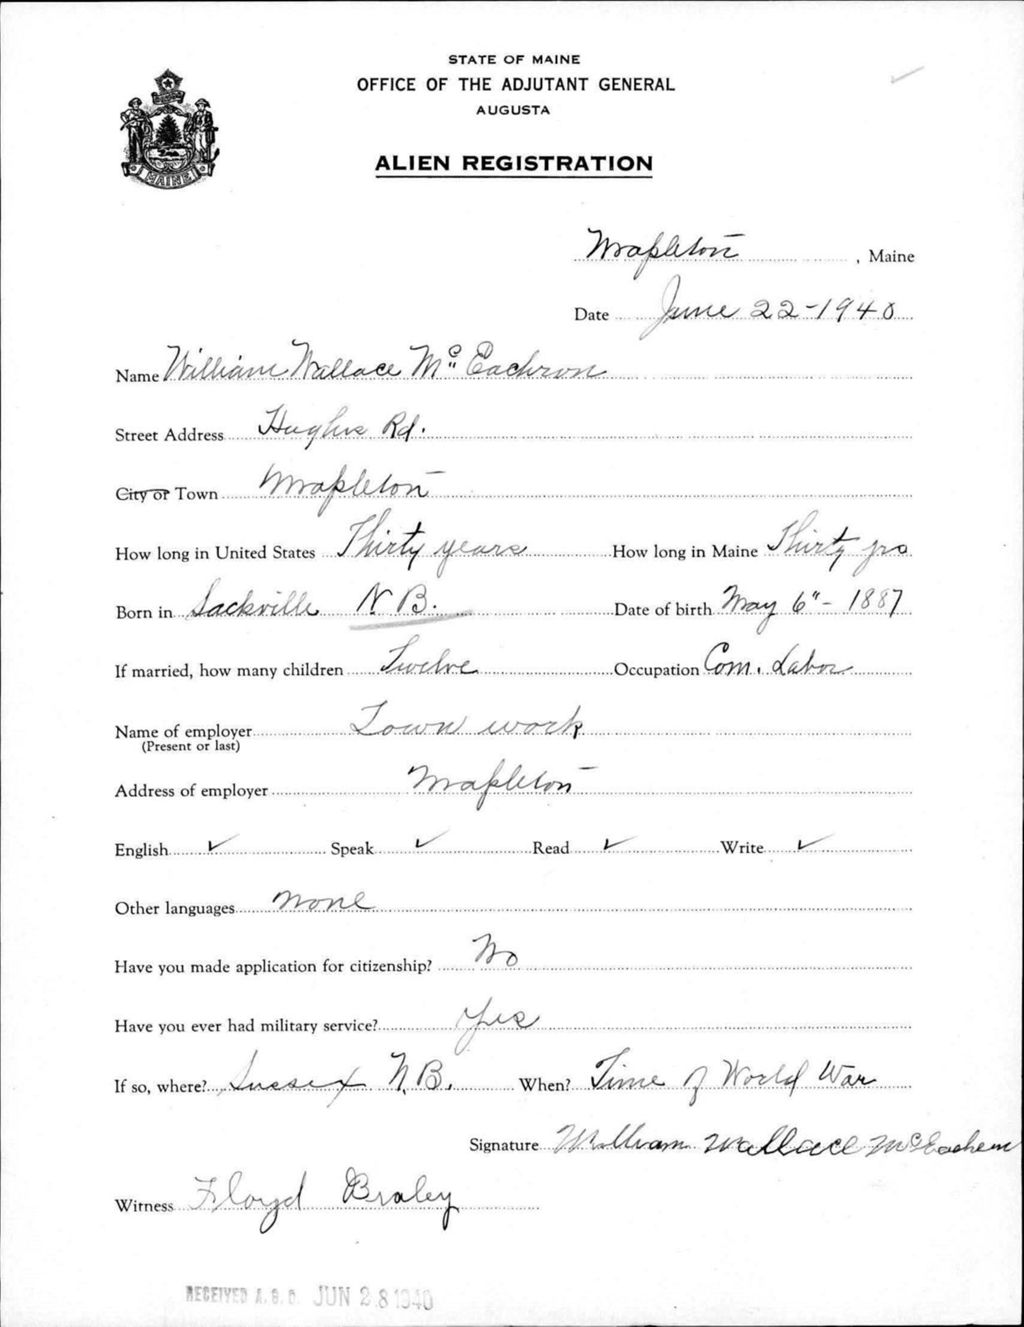 STATE OF MAINE
OFFICE OF THE ADJUTANT GENERAL
AUGUSTA
ALIEN REGISTRATION
MAINE
Mapleton, Maine
Date June 22-1940
Name William Wallace McEachron
Street Address Hughes Rd.
City or Town Mapleton
How long in United States Thirty years How long in Maine Thirty yrs
Born in Sackville N B. Date of birth May 6"- 1887
If married, how many children Twelve Occupation Com. Labor
Name of employer Town work
(Present or last)
Address of employer Mapleton
English ✓ Speak ✓ Read ✓ Write ✓
Other languages None
Have you made application for citizenship? No
Have you ever had military service? Yes
If so, where? Sussex N.B. When? Time of World War
Signature William Wallace McEachern
Witness Floyd Braley
RECEIVED A.G.O. JUN 28 1940